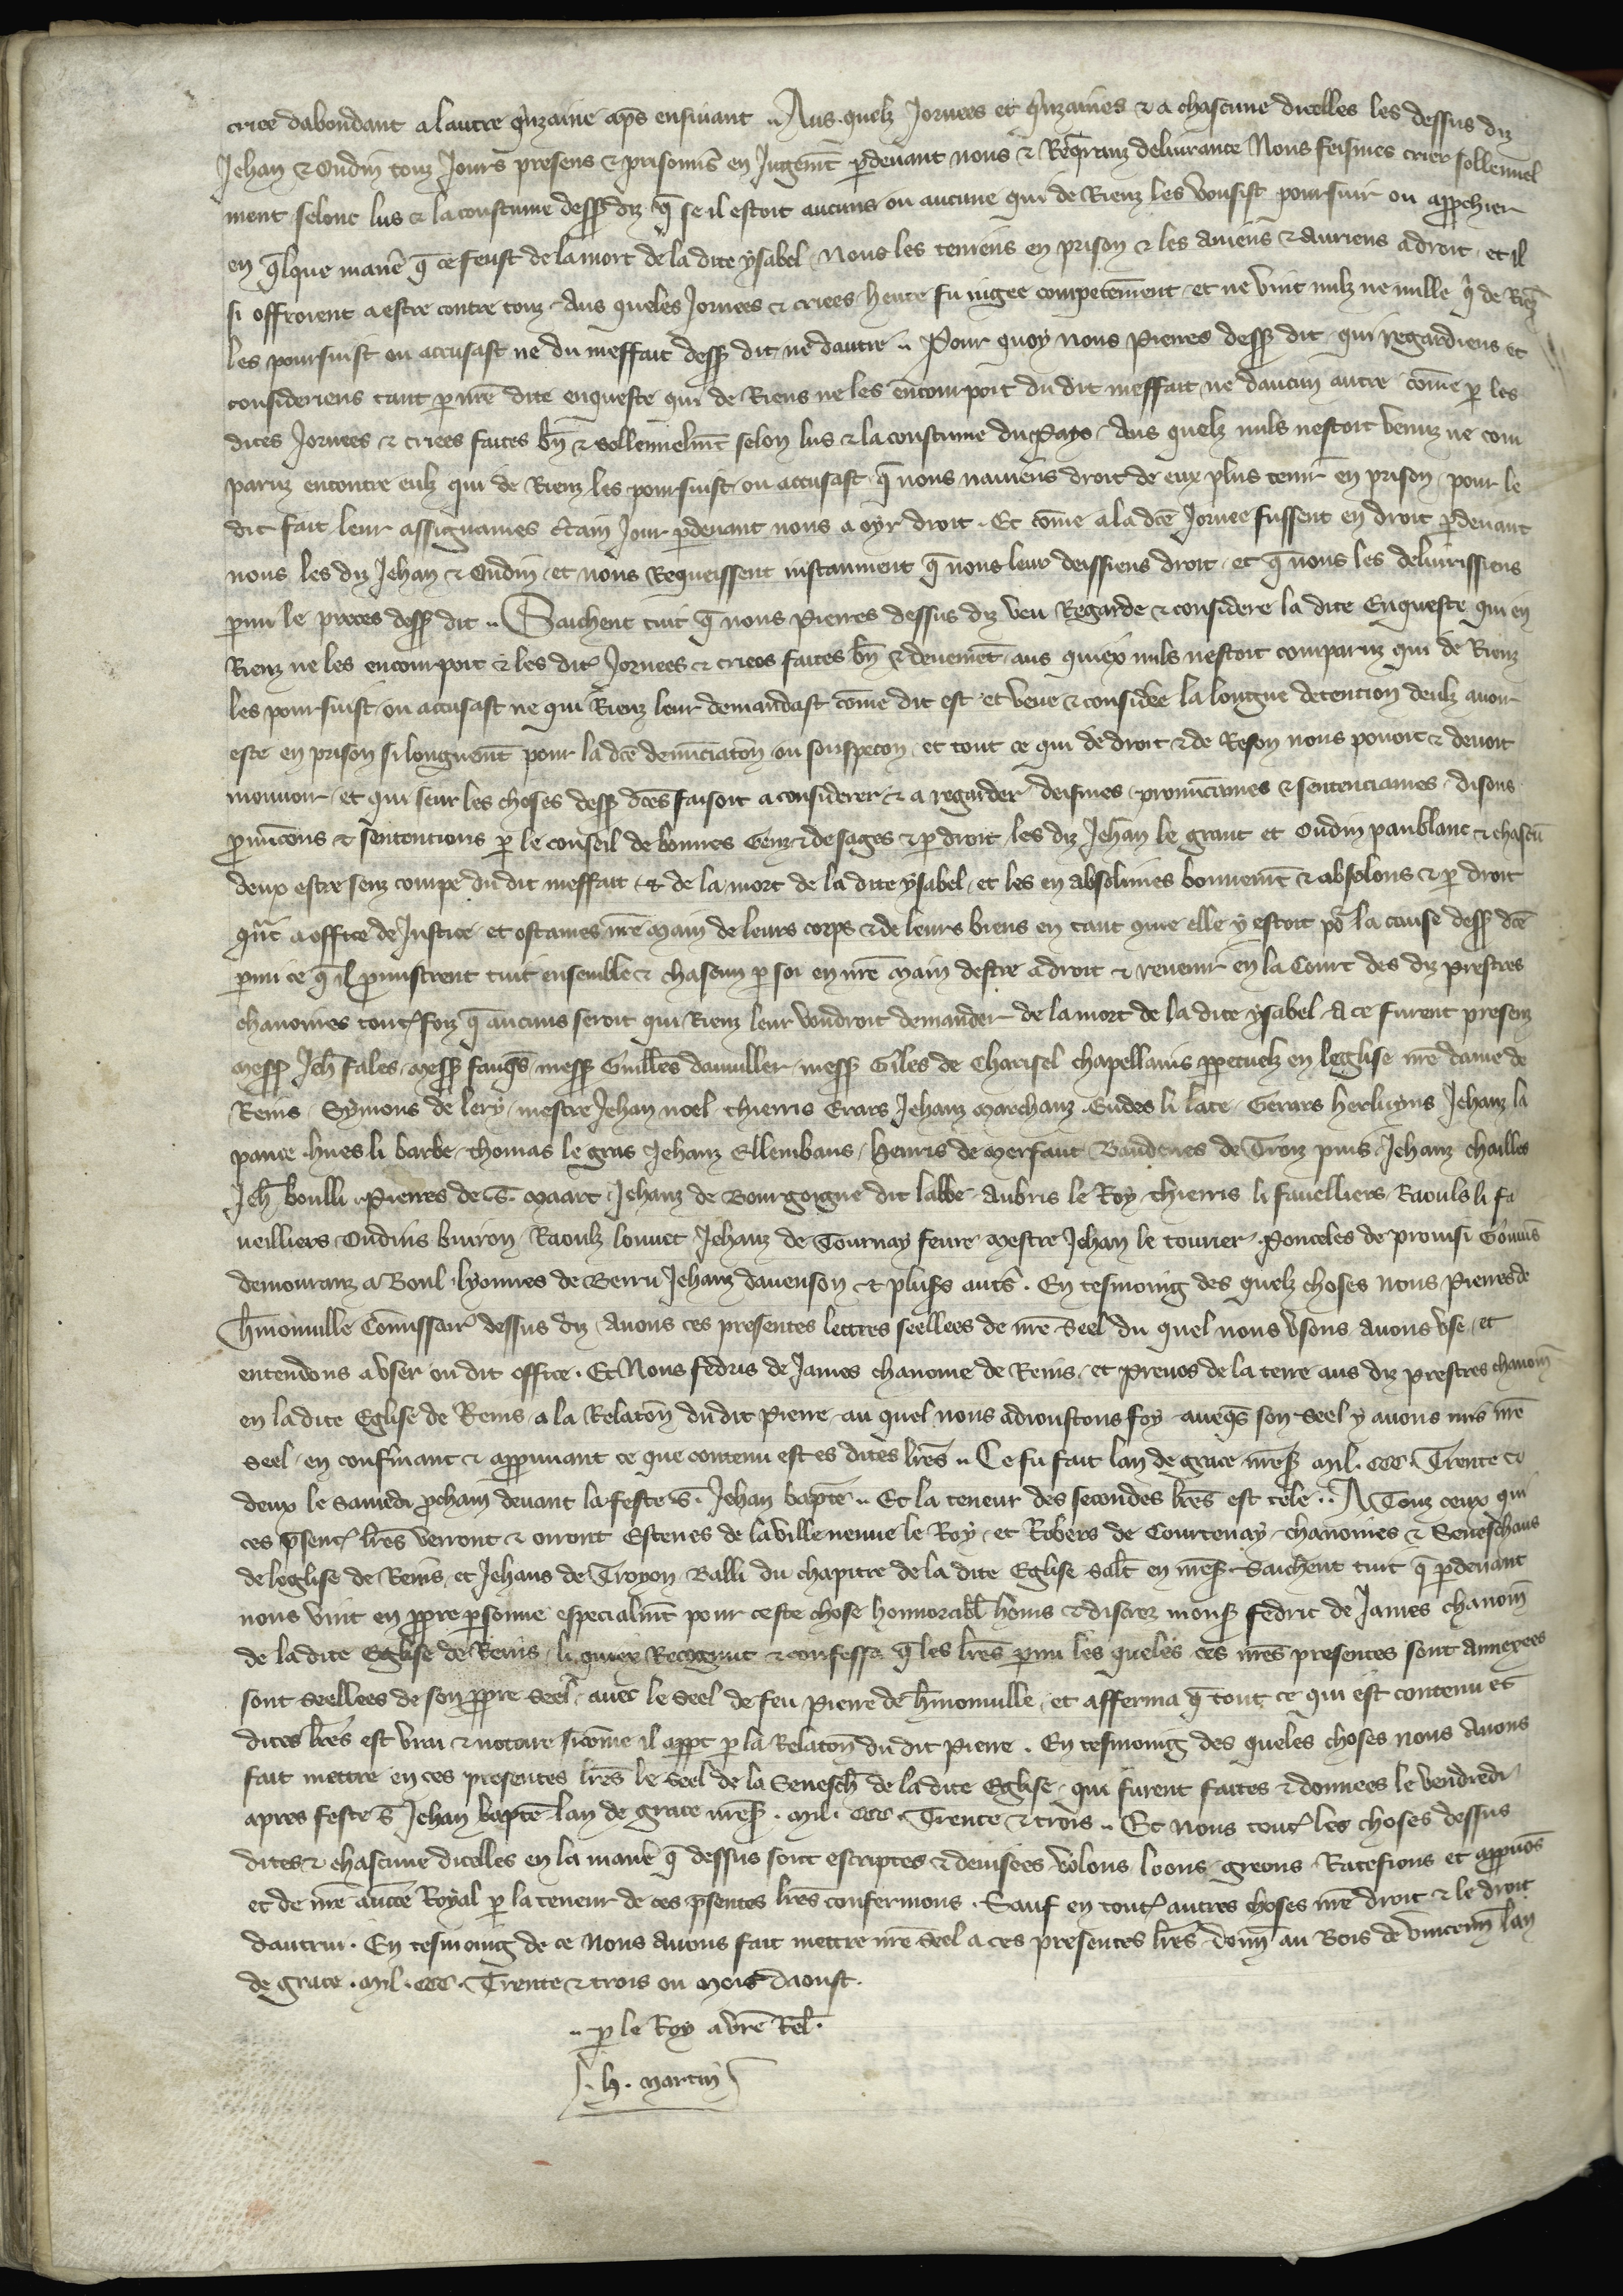 criee dabondant a lautre q̾nzaine ap̃s ensiuant .. Aus quelz Jornees et q̾nzaines & a chascune dicelles les dessus diz
Jehan & Oudin touz Jours presens & prisonnis̾ en Jugem̃t p̱deuant nous & Req̾ranz deliurance Nous feismes crier sollennel
ment selonc lus & la coustume dess᷒ diz q̃ se il estoit aucuns ou aucune qui de Rienz les vousist poursuir ou app̱chier
en q̃lque manẽ q̃ ce feust de la mort de la dite ysabel / Nous les teniens en prison & les auiens & auriens a droit / et il
si offroient a estre contre touz / Aus queles Jornees & criees heure fu iugee competem̃ent et ne vint nulz ne nulle q̾ de Riẽz
les poursuist ou accusast ne du meffait dess᷒ dit ne dautre .. Pour quoy nous Pierres dess᷒ dit qui regardiens et
consideriens tant p̱ nr̃e dite enqueste qui de Riens ne les encorpoit du dit meffait ne daucun autre com̃e p̱ les
dites Jornees & criees faites bñ & sollennelm̃t selon lus & la coustume du Pays / Aus quelz nuls nestoit venuz ne com
paruz encontre eulz qui de Rienz les poursuist ou accusast q̃ nous nauiens droit de eux plus tenir en prison pour le
dit fait leur assignames c̾tain Jour p̱deuant nous a oyr droit . Et com̃e a la dc̃e Jornee fussent en droit p̱deuant
nous les diz Jehan & Oudin / et nous Requeissent instaument q̃ nous leur deissiens droit / et q̃ nous les deliurissiens
p̱mi le proces dess᷒ dit .. Saichent tuit q̃ nous Pierres dessus diz veu Regarde & considere la dite Enqueste qui en
Rienz ne les encorpoit & les dit᷒ Jornees & criees faites bñ & deuemẽt aus quiex nuls nestoit comparuz qui de Rienz
les poursuist ou accusast ne qui Rienz leur demandast com̃e dit est et veue & considẽe la longue detention deulz auoir
este en prison si longuem̃t pour la dc̃e denũciatõn ou souspecon / et tout ce qui de droit & de Reson nous pouoit & deuoit
mouuoir / et qui seur les choses dess᷒ dc̃es faisoit a considerer & a regarder deismes / pronũciames & sentenciames / disons
p̱nũcons & sentencions p̱ le conseil de bonnes Genz & de sages & p̱ droit les diz Jehan le grant et Oudin panblanc & chascũ
deux estre senz coupe du dit meffait & de la mort de la dite ysabel / et les en absolimes bonnem̃t & absolons & p̱ droit
q̃nt a office de Justice / et ostames nr̃e main de leurs corps & de leurs biens en tant que elle y estoit po᷑ la cause dess᷒ dc̃e
p̱mi ce q̃ il p̱mistrent tuit ensemble & chascun p̱ soi en nr̃e main destre a droit & reuenir en la Court des diz prestres
chanoines tout᷒ foiz q̃ aucuns seroit qui Rienz leur voudroit demander de la mort de la dite ysabel / A ce furent presenz
mess᷒ Jeh̃ fales / mess᷒ / mess᷒ Guill̃es / mess᷒ Giles de Charisel chapellains pp̱etuelz en leglise nr̃e dame de
Reins / Symons de lery / mestre Jehan noel / thierris Erars Jehanz Marchanz / Eudes li late / Gerars herluyns Jehanz la
pance / hues li barbe / thomas le gras Jehanz Ellembaus / henris de Merfaut Jehanz chailles
Jeh̃ boulli / Pierres de .S. Maart / Jehanz de Bourgoigne dit labbe / Aubris le Roy / thierris li fauelliers / Raouls li fa
ueilliers / Oudins buiron / Raoulz louuet Jehanz de Tournay feure / Mestre Jehan le tourier / Ponceles de prouisi
demouranz a Boul / lyonnes de Berru Jehanz dauenson & plus᷒s aut̃s . En tesmoing des quelz choses nous Pierres de
h̃monuille Com̃issair̾ dessus diz / auons ces presentes lettres seellees de nr̃e seel du quel nous vsons auons vse / et
entendons a vser ou dit office . Et Nous fedris de James chanoine de Reins / et Preuos de la terre aus diz prestres chanoiñ
en la dite Eglise de Reins / a la Relatoñ du dit Pierre / au quel nous adioustons foy aueq̃s son seel y auons mis nr̃e
seel / en confirmant & app̱uuant ce que contenu est es dites lr̃es .. Ce fu fait lan de grace mil . ccc . Trente et
deux le samedi p̱chain deuant la feste .s. Jehan bap̃te .. Et la teneur des secondes lr̃es est tele .. A Touz ceux qui
ces p̃sent᷒ lr̃es verront & orront Estenes de la ville neuue le Roy / et Robers de Courtenay / chanoines & Seneschaus
de leglise de Reins et Jehans de Troyon Balli du chapitre de la dite Eglise Salt̃ en nr̃e s᷒ . Saichent tuit q̃ p̱deuant
nous vint en pp̱re p̱sonne especialm̃t pour ceste chose honnorabl̃ homs & discrez mons᷒ fedric de James chanoiñ
de la dite Eglise de Reins / li quiex Recognut & confessa q̃ les lr̃es p̱mi les queles ces nr̃es presentes sont annexees
sont seellees de son pp̱re seel / auec le seel de feu Pierre de h̃monuille / et afferma q̃ tout ce qui est contenu es
dites lr̃es est vrai & notoire sicom̃e il app̱t p̱ la Relatoñ du dit Pierre . En tesmoing des queles choses nous auons
fait mettre en ces presentes lr̃es le seel de la Senesch̃ de la dite Eglise / qui furent faites & donnees le vendredi
apres feste s̃ Jehan bap̃te lan de grace . mil . ccc . Trente & trois .. Et Nous tout᷒ les choses dessus
dites & chascune dicelles en la manẽ q̃ dessus sont escriptes & deuisees volons / loons / greons / Ratefions et app̱uõs
et de nr̃e auct̃e Royal p̱ la teneur de ces p̃sentes lr̃es confermons . Sauf en tout᷒ autres choses nr̃e droit & le droit
dautrui . En tesmoing de ce Nous Auons fait mettre nr̃e seel a ces presentes lr̃es / doñ au Bois de vincenñ lan
de grace . mil . ccc . Trente & trois ou mois daoust .
.. p̱ le Roy a vr̃e Rel̃ .
. h . martin